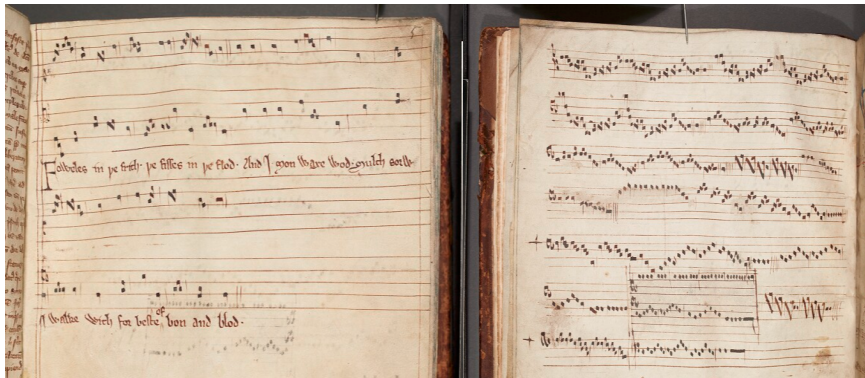 Foweles in þe frith. þe fisses in þe flod. And I mon waxe wod. Mulch sorw
I walke with for beste of bon and blod.